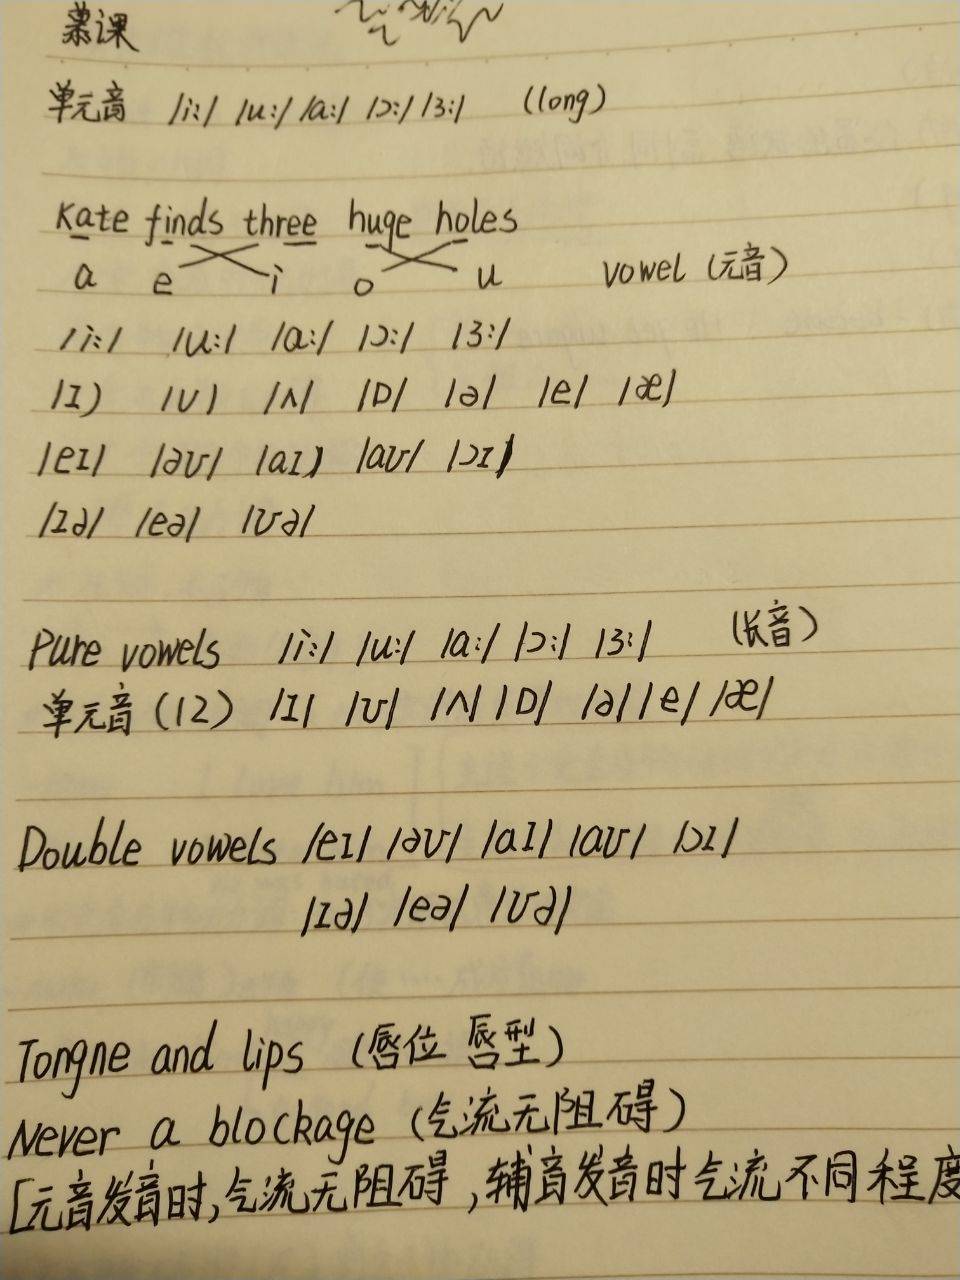 慕课
单元音 /i:/ /u:/ /a:/ /ɔ:/ /3:/ (long)
Kate finds three huge holes
a e i o u vowel (元音)
/i:/ /u:/ /a:/ /ɔ:/ /3:/
/ɪ/ /ʊ/ /ʌ/ /ɒ/ /ə/ /e/ /æ/
/eɪ/ /əʊ/ /aɪ/ /aʊ/ /ɔɪ/
/ɪə/ /eə/ /ʊə/
Pure vowels /i:/ /u:/ /a:/ /ɔ:/ /3:/ (长音)
单元音 (12) /ɪ/ /ʊ/ /ʌ/ /ɒ/ /ə/ /e/ /æ/
Double vowels /eɪ/ /əʊ/ /aɪ/ /aʊ/ /ɔɪ/
/ɪə/ /eə/ /ʊə/
Tongne and lips (唇位 唇型)
Never a blockage (气流无阻碍)
[元音发音时,气流无阻碍,辅音发音时气流不同程度